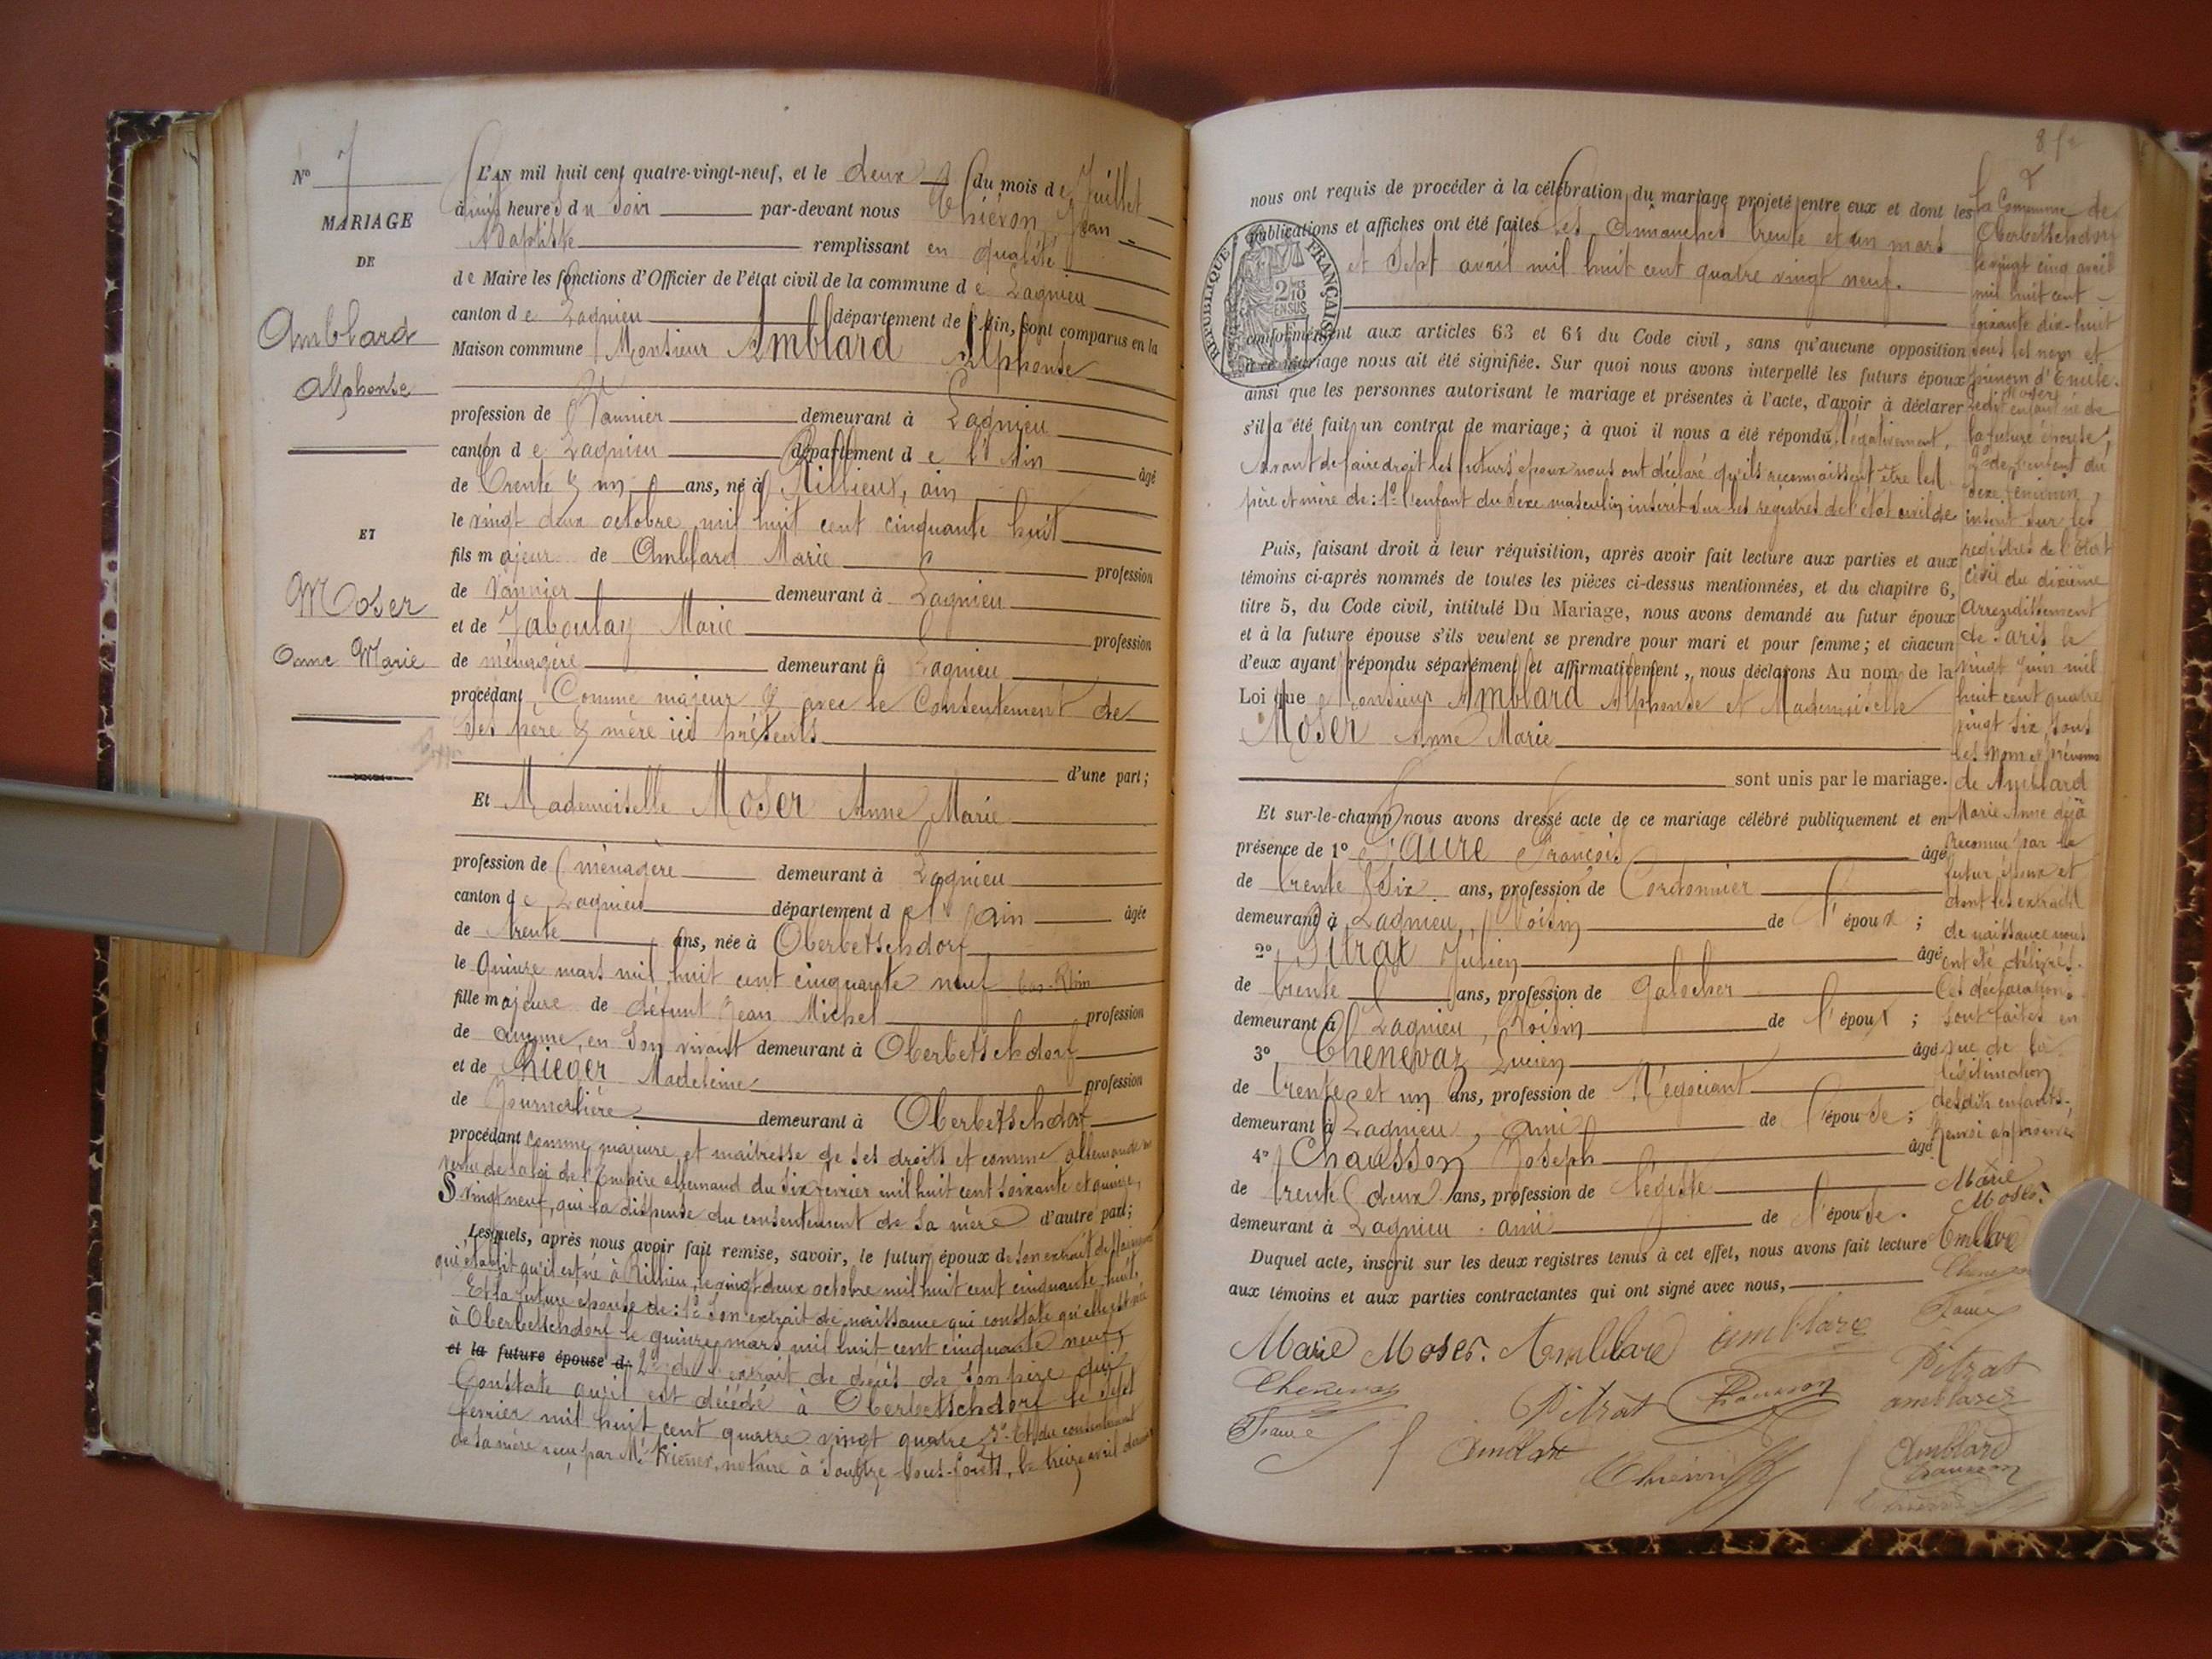 N° 7
MARIAGE
DE
Amblard
Alphonse
ET
Moser
Anne Marie
L'AN mil huit cent quatre-vingt-neuf, et le deux du mois de Juillet
à cinq heures du Soir par-devant nous Chiévon, Jean-
Baptiste remplissant en qualité
de Maire les fonctions d'Officier de l'état civil de la commune de Lagnieu
canton de Lagnieu département de l'Ain, sont comparus en la
Maison commune Monsieur Amblard Alphonse
profession de Vannier demeurant à Lagnieu
canton de Lagnieu département de l'Ain âgé
de trente & un ans, né à Rillieux, ain
le vingt deux octobre mil huit cent cinquante huit
fils majeur de Amblard Marie profession
de Vannier demeurant à Lagnieu
et de Jaboulay Marie profession
de ménagère demeurant à Lagnieu
procédant Comme majeur & avec le Consentement de
Ses père & mère ici présents
d'une part;
Et Mademoiselle Moser Anne Marie
profession de ménagère demeurant à Lagnieu
canton de Lagnieu département de l'Ain âgée
de trente ans, née à Oberbetschdorf
le Quinze mars mil huit cent cinquante neuf bas-Rhin
fille majeure de défunt Jean Michel profession
de aucune, en Son vivant demeurant à Oberbetschdorf
et de Rieger Madeleine profession
de Journalière demeurant à Oberbetschdorf
procédant comme majeure et maîtresse de ses droits et comme allemande en
vertu de la loi de l'Empire allemand du Six fevrier mil huit cent soixante et quinze,
§ vingt neuf, qui la dispense du consentement de sa mère d'autre part;
Lesquels, après nous avoir fait remise, savoir, le futur époux de son extrait de naissance
qui établit qu'il est né à Rillieu, le vingt deux octobre mil huit cent cinquante huit,
Et la future epouse de: 1° Son extrait de naissance qui constate qu'elle est née
à Oberbetschdorf le quinze mars mil huit cent cinquante neuf,
et la future épouse d 2° de l'extrait de décès de son père qui
Constate qu'il est décédé à Oberbetschdorf le sept
fevrier mil huit cent quatre vingt quatre 3° Et du consentement
de sa mère reçu par Me Kiener, notaire à Soultz-sous-forêts, le treize avril dernier
nous ont requis de procéder à la célébration du mariage projeté entre eux et dont les
publications et affiches ont été faites les dimanches trente et un mars
et Sept avril mil huit cent quatre vingt neuf.
RÉPUBLIQUE FRANÇAISE
2/10 EN SUS
conformément aux articles 63 et 64 du Code civil, sans qu'aucune opposition
à ce mariage nous ait été signifiée. Sur quoi nous avons interpellé les futurs époux
ainsi que les personnes autorisant le mariage et présentes à l'acte, d'avoir à déclarer
s'il a été fait un contrat de mariage; à quoi il nous a été répondu négativement.
Avant de faire droit les futurs époux nous ont déclaré qu'ils reconnaissent être les
père et mère de: 1° l'enfant du Sexe masculin inscrit sur les registres de l'état civil de
Puis, faisant droit à leur réquisition, après avoir fait lecture aux parties et aux
témoins ci-après nommés de toutes les pièces ci-dessus mentionnées, et du chapitre 6,
titre 5, du Code civil, intitulé Du Mariage, nous avons demandé au futur époux
et à la future épouse s'ils veulent se prendre pour mari et pour femme; et chacun
d'eux ayant répondu séparément et affirmativement, nous déclarons Au nom de la
Loi que Monsieur Amblard Alphonse et Mademoiselle
Moser Anne Marie
sont unis par le mariage.
Et sur-le-champ nous avons dressé acte de ce mariage célébré publiquement et en
présence de 1° Faure François âgé
de trente Six ans, profession de Cordonnier
demeurant à Lagnieu, Voisin de l'époux;
2° Pitrat Julien âgé
de trente ans, profession de Galocher
demeurant à Lagnieu, Voisin de l'époux;
3° Chenevaz Lucien âgé
de trente et un ans, profession de Négociant
demeurant à Lagnieu, ami de l'épouse;
4° Chausson Joseph âgé
de trente deux ans, profession de Légiste
demeurant à Lagnieu ami de l'épouse.
Duquel acte, inscrit sur les deux registres tenus à cet effet, nous avons fait lecture
aux témoins et aux parties contractantes qui ont signé avec nous,
Marie Moser. Amblard amblard
Chenevaz Pitrat Chausson
Faure Amblard Chiévon
la Commune de
Oberbetschdorf
le vingt cinq avril
mil huit cent
soixante dix-huit
sous les nom et
prénom d'Emile
Moser
ledit enfant né de
la future épouse;
2° de l'enfant du
sexe féminin,
inscrit sur les
registres de l'état
civil du dixième
Arrondissement
de Paris le
vingt Juin mil
huit cent quatre
vingt six, sous
les nom et prénoms
de Amblard
Marie Anne déjà
reconnue par le
futur époux et
dont les extraits
de naissance nous
ont été délivrés.
Ces déclarations
sont faites en
vue de la
légitimation
desdits enfants.
Renvoi approuvé
Marie
Moser.
Amblard
Chenevaz
Faure
Pitrat
amblard
Amblard
Chausson